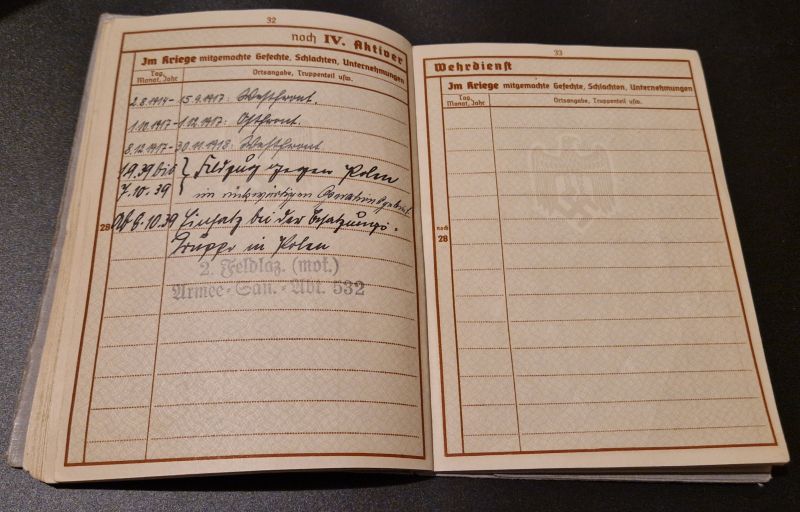 32
noch IV. Aktiver
Im Kriege mitgemachte Gefechte, Schlachten, Unternehmungen
Tag, Monat, Jahr
Ortsangabe, Truppenteil usw.
2.8.1914 - 15.9.1917: Westfront.
1.10.1917 - 1.12.1917: Ostfront.
8.12.1917 - 30.11.1918: Westfront
1.9.39 bis } Feldzug gegen Polen
7.10.39 im rückwärtigen Operationsgebiet
28 Ab 8.10.39 Einsatz bei der Besatzungs-
Truppe in Polen
2. Feldlaz. (mot.)
Armee-San.-Abt. 532
33
Wehrdienst
Im Kriege mitgemachte Gefechte, Schlachten, Unternehmungen
Tag, Monat, Jahr
Ortsangabe, Truppenteil usw.
noch
28